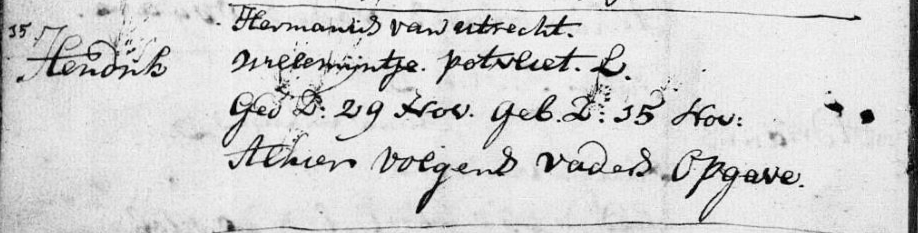 Hermanus van utrecht.
35
Hendrik
Willemijntje. potvliet. L.
Ged D: 29 Nov. geb. D: 15 Nov:
Alhier volgens vaders Opgave.